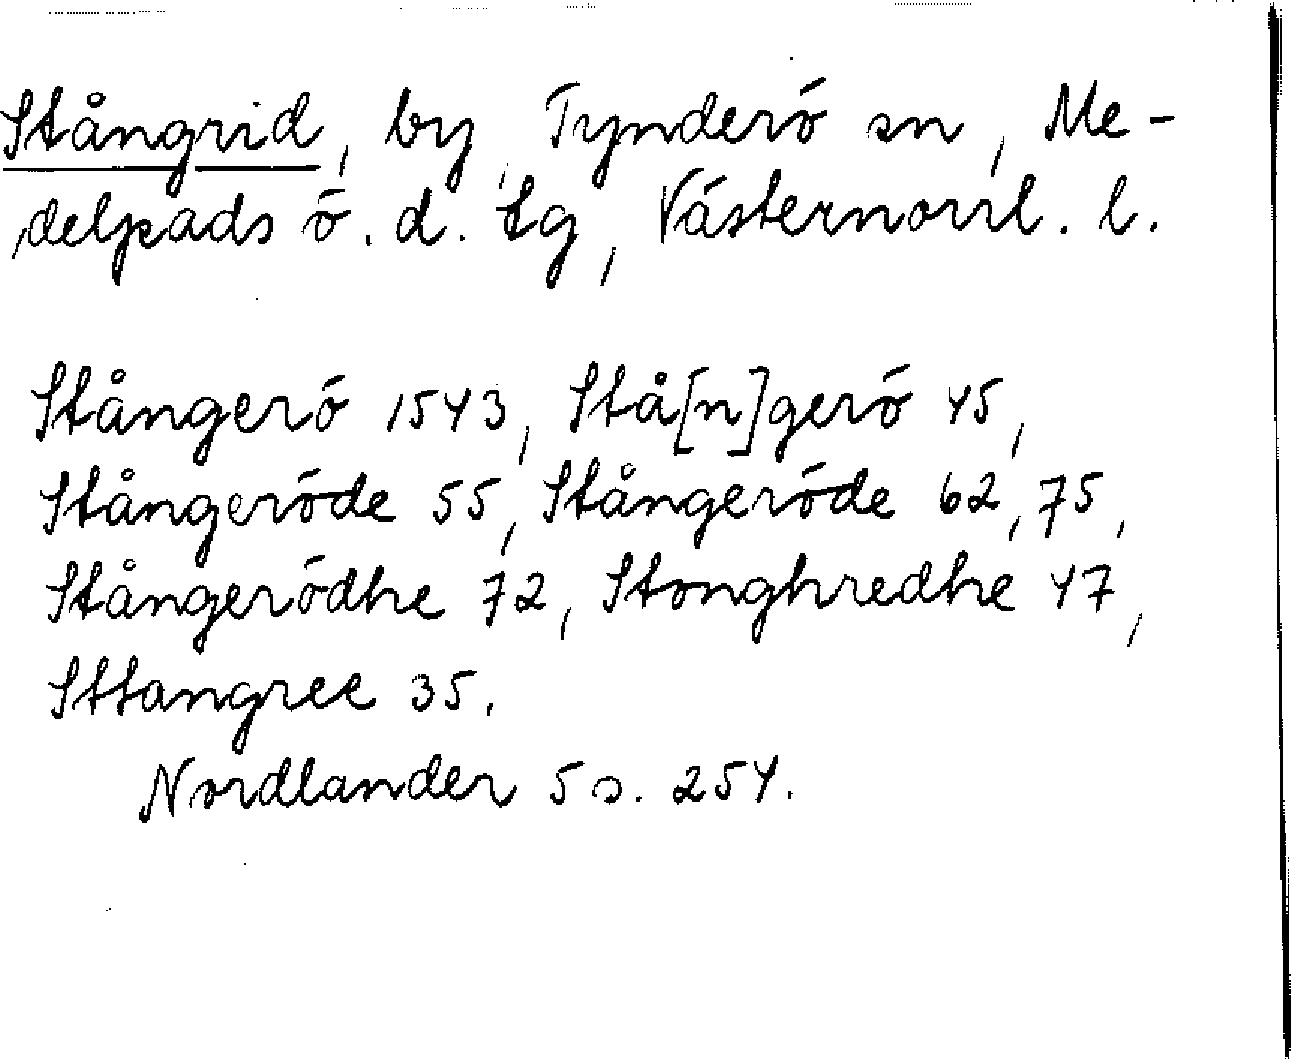 Stångrid, by, Tynderö sn, Me-
delpads ö. d. tg, Västernorrl. l.
Stångerö 1543, Stå[n]gerö 45,
Stångeröde 55, Stångeröde 62, 75,
Stångerödhe 72, Stonghredhe 47,
Sttangree 35.
Nordlander 5 s. 254.